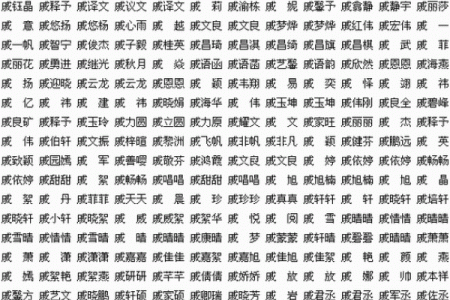 戚钰晶 戚释予 戚译文 戚议文 戚译文 戚　莉 戚渝栋 戚　妮 戚馨予 戚翕静 戚静宇 戚丽莎
戚　意 戚悠扬 戚杨悠 戚心雨 戚　越 戚良文 戚文良 戚梦烨 戚梦烨 戚红伟 戚宏伟 戚　一
戚一帆 戚智宁 戚俊杰 戚子毅 戚桂英 戚昌琦 戚昌淇 戚昌绮 戚昌旗 戚昌棋 戚　武 戚　菲
戚丽花 戚勇进 戚继光 戚秋月 戚　焱 戚语函 戚语菡 戚艺馨 戚语韵 戚欣然 戚恩恩 戚海燕
戚　扬 戚迎晓 戚云龙 戚云龙 戚恩恩 戚　颖 戚韦翔 戚　易 戚　奕 戚　怿 戚　翊 戚　祎
戚　亿 戚　祎 戚　建 戚　祎 戚晓娟 戚海华 戚　伟 戚玉坤 戚玉坤 戚伟刚 戚良全 戚碧峰
戚良矿 戚释予 戚玉玲 戚力圆 戚立圆 戚力原 戚耀文 戚　文 戚家旺 戚丽丽 戚　杰 戚释予
戚　伟 戚伯轩 戚文振 戚梓暄 戚黎洲 戚飞帆 戚非帆 戚非凡 戚　颖 戚健芬 戚鹏远 戚　英
戚致颖 戚园嫣 戚　军 戚善嘤 戚敬芬 戚鸿霞 戚文良 戚文良 戚　婷 戚依婷 戚依婷 戚畅畅
戚依婷 戚甜甜 戚　絮 戚畅畅 戚唱唱 戚甜甜 戚唱唱 戚　旭 戚旭楠 戚旭楠 戚　旭 戚　晶
戚　絮 戚　丹 戚菲菲 戚天天 戚　晨 戚　珍 戚珍珍 戚真真 戚轩轩 戚　轩 戚　轩 戚培轩
戚晓轩 戚小轩 戚晓絮 戚　威 戚威威 戚絮华 戚　悦 戚　阅 戚　雪 戚晴晴 戚晓晴 戚雪晴
戚雪晴 戚情情 戚晴晴 戚晴晴 戚康晴 戚　梦 戚蒙蒙 戚轩晴 戚磬磬 戚晴晴 戚晴晴 戚萧萧
戚　萧 戚　潇 戚潇潇 戚嘉嘉 戚佳佳 戚佳絮 戚嘉旭 戚佳旭 戚　佳 戚　嘉 戚　嘉 戚　佳
戚　嫣 戚絮艳 戚艳絮 戚研研 戚芊芊 戚倩倩 戚娇娇 戚　放 戚　放 戚　娜 戚　帅 戚本祥
戚馨方 戚艺文 戚晓鹏 戚轩硕 戚家硕 戚卿瑞 戚晓芳 戚　岩 戚君丞 戚君丞 戚军丞 戚志佐